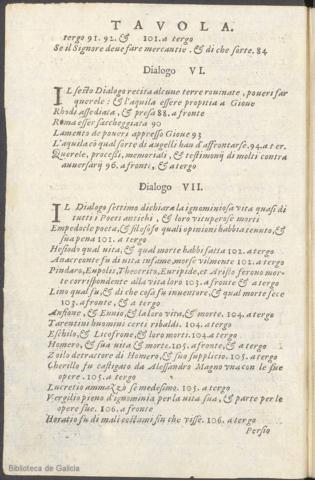 TAVOLA.
tergo 91. 92. & 101. a tergo
Se il Signore deue fare mercantie. & di che sorte. 84
Dialogo VI.
IL sesto Dialogo recita alcune terre rouinate, poueri far
querele: & l'aquila essere propitia a Gioue
Rhodi assediata, & presa 88. a fronte
Roma esser saccheggiata 90
Lamento de poueri appresso Gioue 93
L'aquila cō qual sorte di augelli hau d'affrontarse. 94. a ter.
Querele, processi, memoriali, & testimonij di molti contra
auuersarij 96. a fronti, & a tergo
Dialogo VII.
IL Dialogo settimo dichiara la ignominiosa vita quasi di
tutti i Poeti antichi, & loro vituperose morti
Empedocle poeta, & filosofo quali opinioni habbia tenuto, &
sua pena 101. a tergo
Hesiodo qual uita, & qual morte habbi fatta 102. a tergo
Anacreonte fu di uita infame, morse vilmente 102. a tergo
Pindaro, Eupolis, Theocrito, Euripide, et Aristo ferono mor-
te corrispondente alla vita loro 103. a fronte & a tergo
Lino qual fu, & di che cosa fu inuentore, & qual morte fece
103. a fronte, & a tergo
Anfione, & Ennio, & la loro vita, & morte. 104. a tergo
Tarentini huomini certi ribaldi. 104. a tergo
Eschilo, & Licofrone, & loro morti. 104. a tergo
Homero, & sua uita & morte. 105. a fronte, & a tergo
Zoilo detrattore di Homero, & suo supplicio. 105. a tergo
Cherillo fu castigato da Alessandro Magno vna con le sue
opere. 105. a tergo
Lucretio ammazzò se medesimo. 105. a tergo
Vergilio pieno d'ignominia per la uita sua, & parte per le
opere sue. 106. a fronte
Horatio fu di mali costumi fin che visse. 106. a tergo
Persio
Biblioteca de Galicia